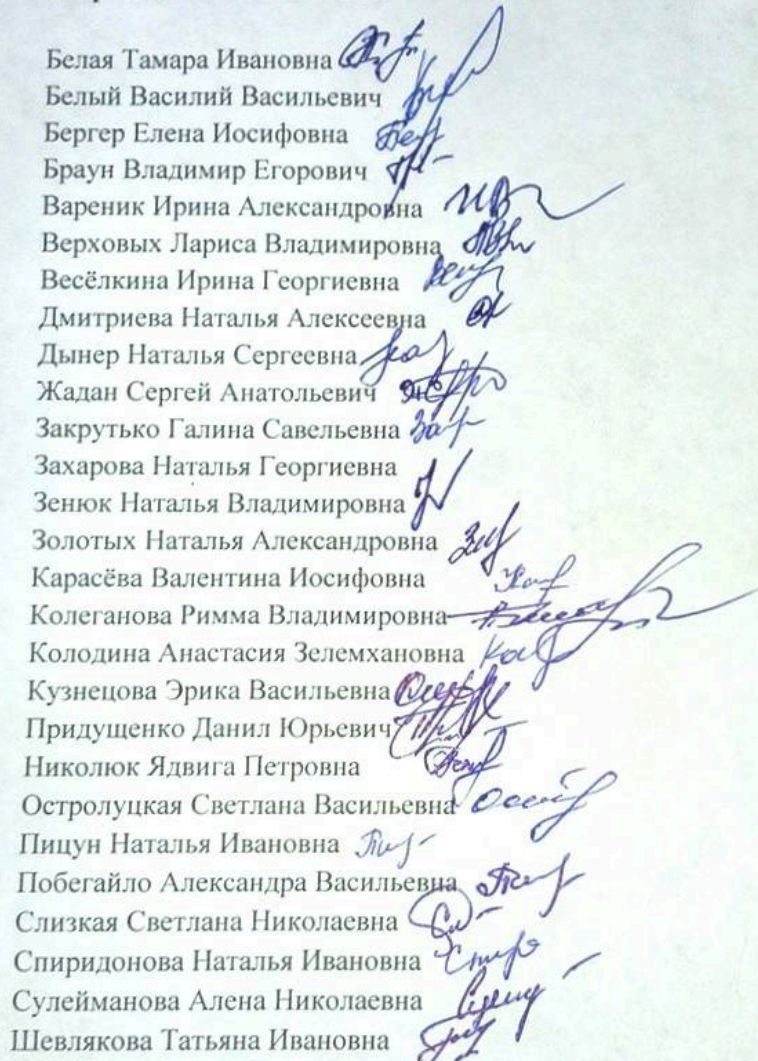 Белая Тамара Ивановна
Белый Василий Васильевич
Бергер Елена Иосифовна
Браун Владимир Егорович
Вареник Ирина Александровна
Верховых Лариса Владимировна
Весёлкина Ирина Георгиевна
Дмитриева Наталья Алексеевна
Дынер Наталья Сергеевна
Жадан Сергей Анатольевич
Закрутько Галина Савельевна
Захарова Наталья Георгиевна
Зенюк Наталья Владимировна
Золотых Наталья Александровна
Карасёва Валентина Иосифовна
Колеганова Римма Владимировна
Колодина Анастасия Зелемхановна
Кузнецова Эрика Васильевна
Придущенко Данил Юрьевич
Николюк Ядвига Петровна
Остролуцкая Светлана Васильевна
Пицун Наталья Ивановна
Побегайло Александра Васильевна
Слизкая Светлана Николаевна
Спиридонова Наталья Ивановна
Сулейманова Алена Николаевна
Шевлякова Татьяна Ивановна